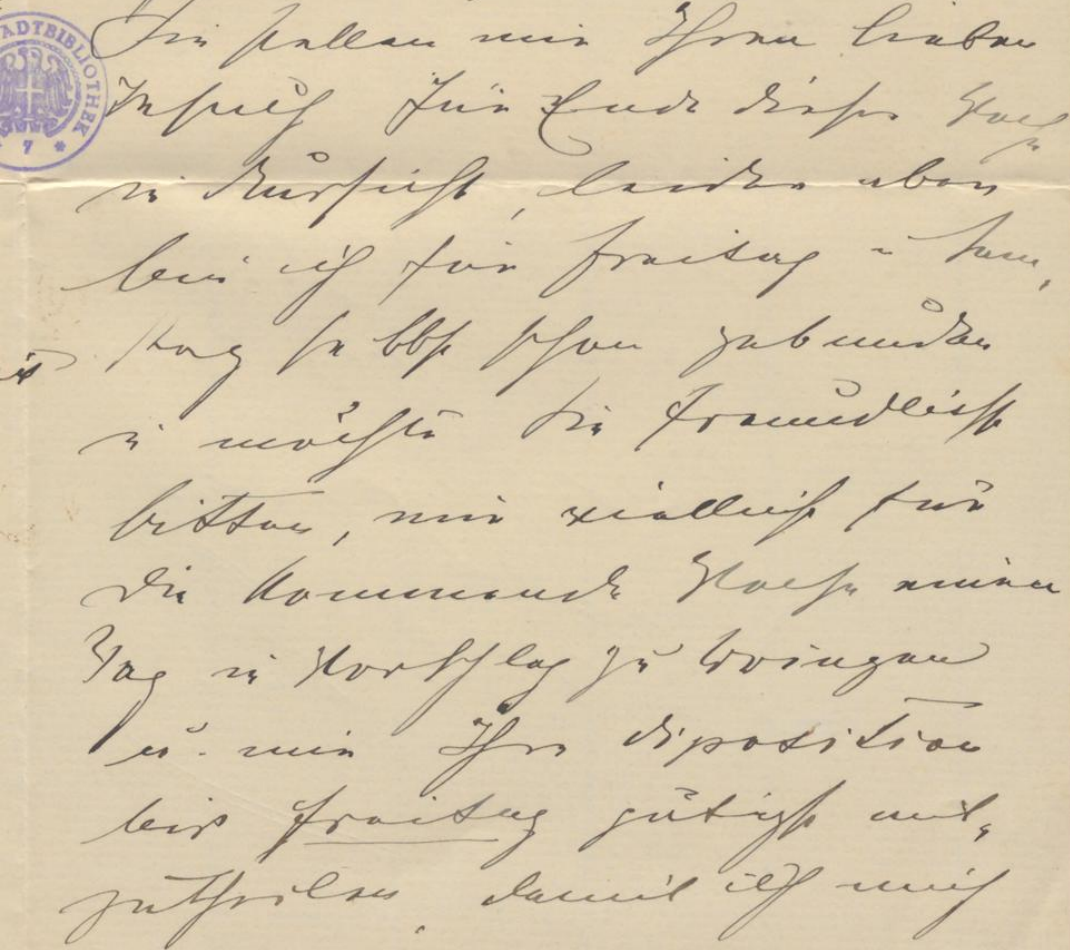 STADTBIBLIOTHEK
* 7 *
Sie stellen mir Ihren lieben
Besuch für Ende dieser Woche
in Aussicht, leider aber
bin ich für Freitag u Sams,
tag selbst schon gebunden
u möchte Sie freundlichst
bitten, mir vielleicht für
die kommende Woche einen
Tag in Vorschlag zu bringen
u. mir Ihre disposition
bis Freitag gütigst mit,
zutheilen, damit ich mich